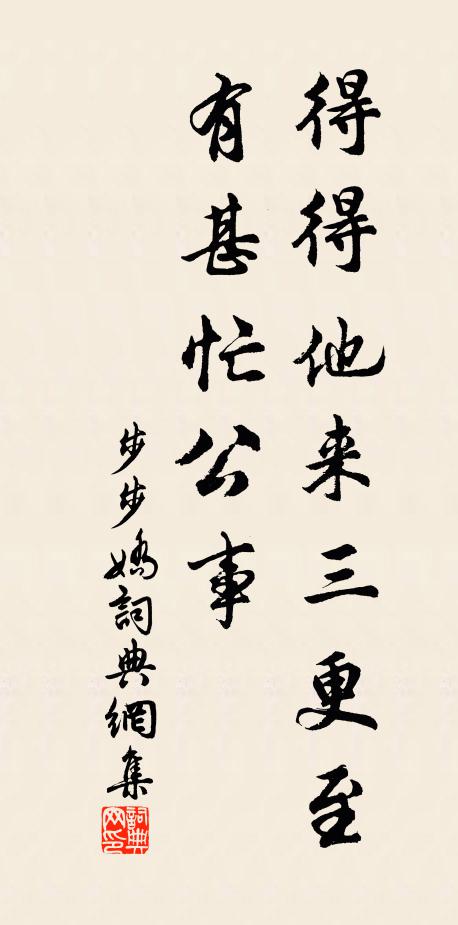 得得他来三更至
有甚忙公事
步步嬌詞典網集
詞典
网印